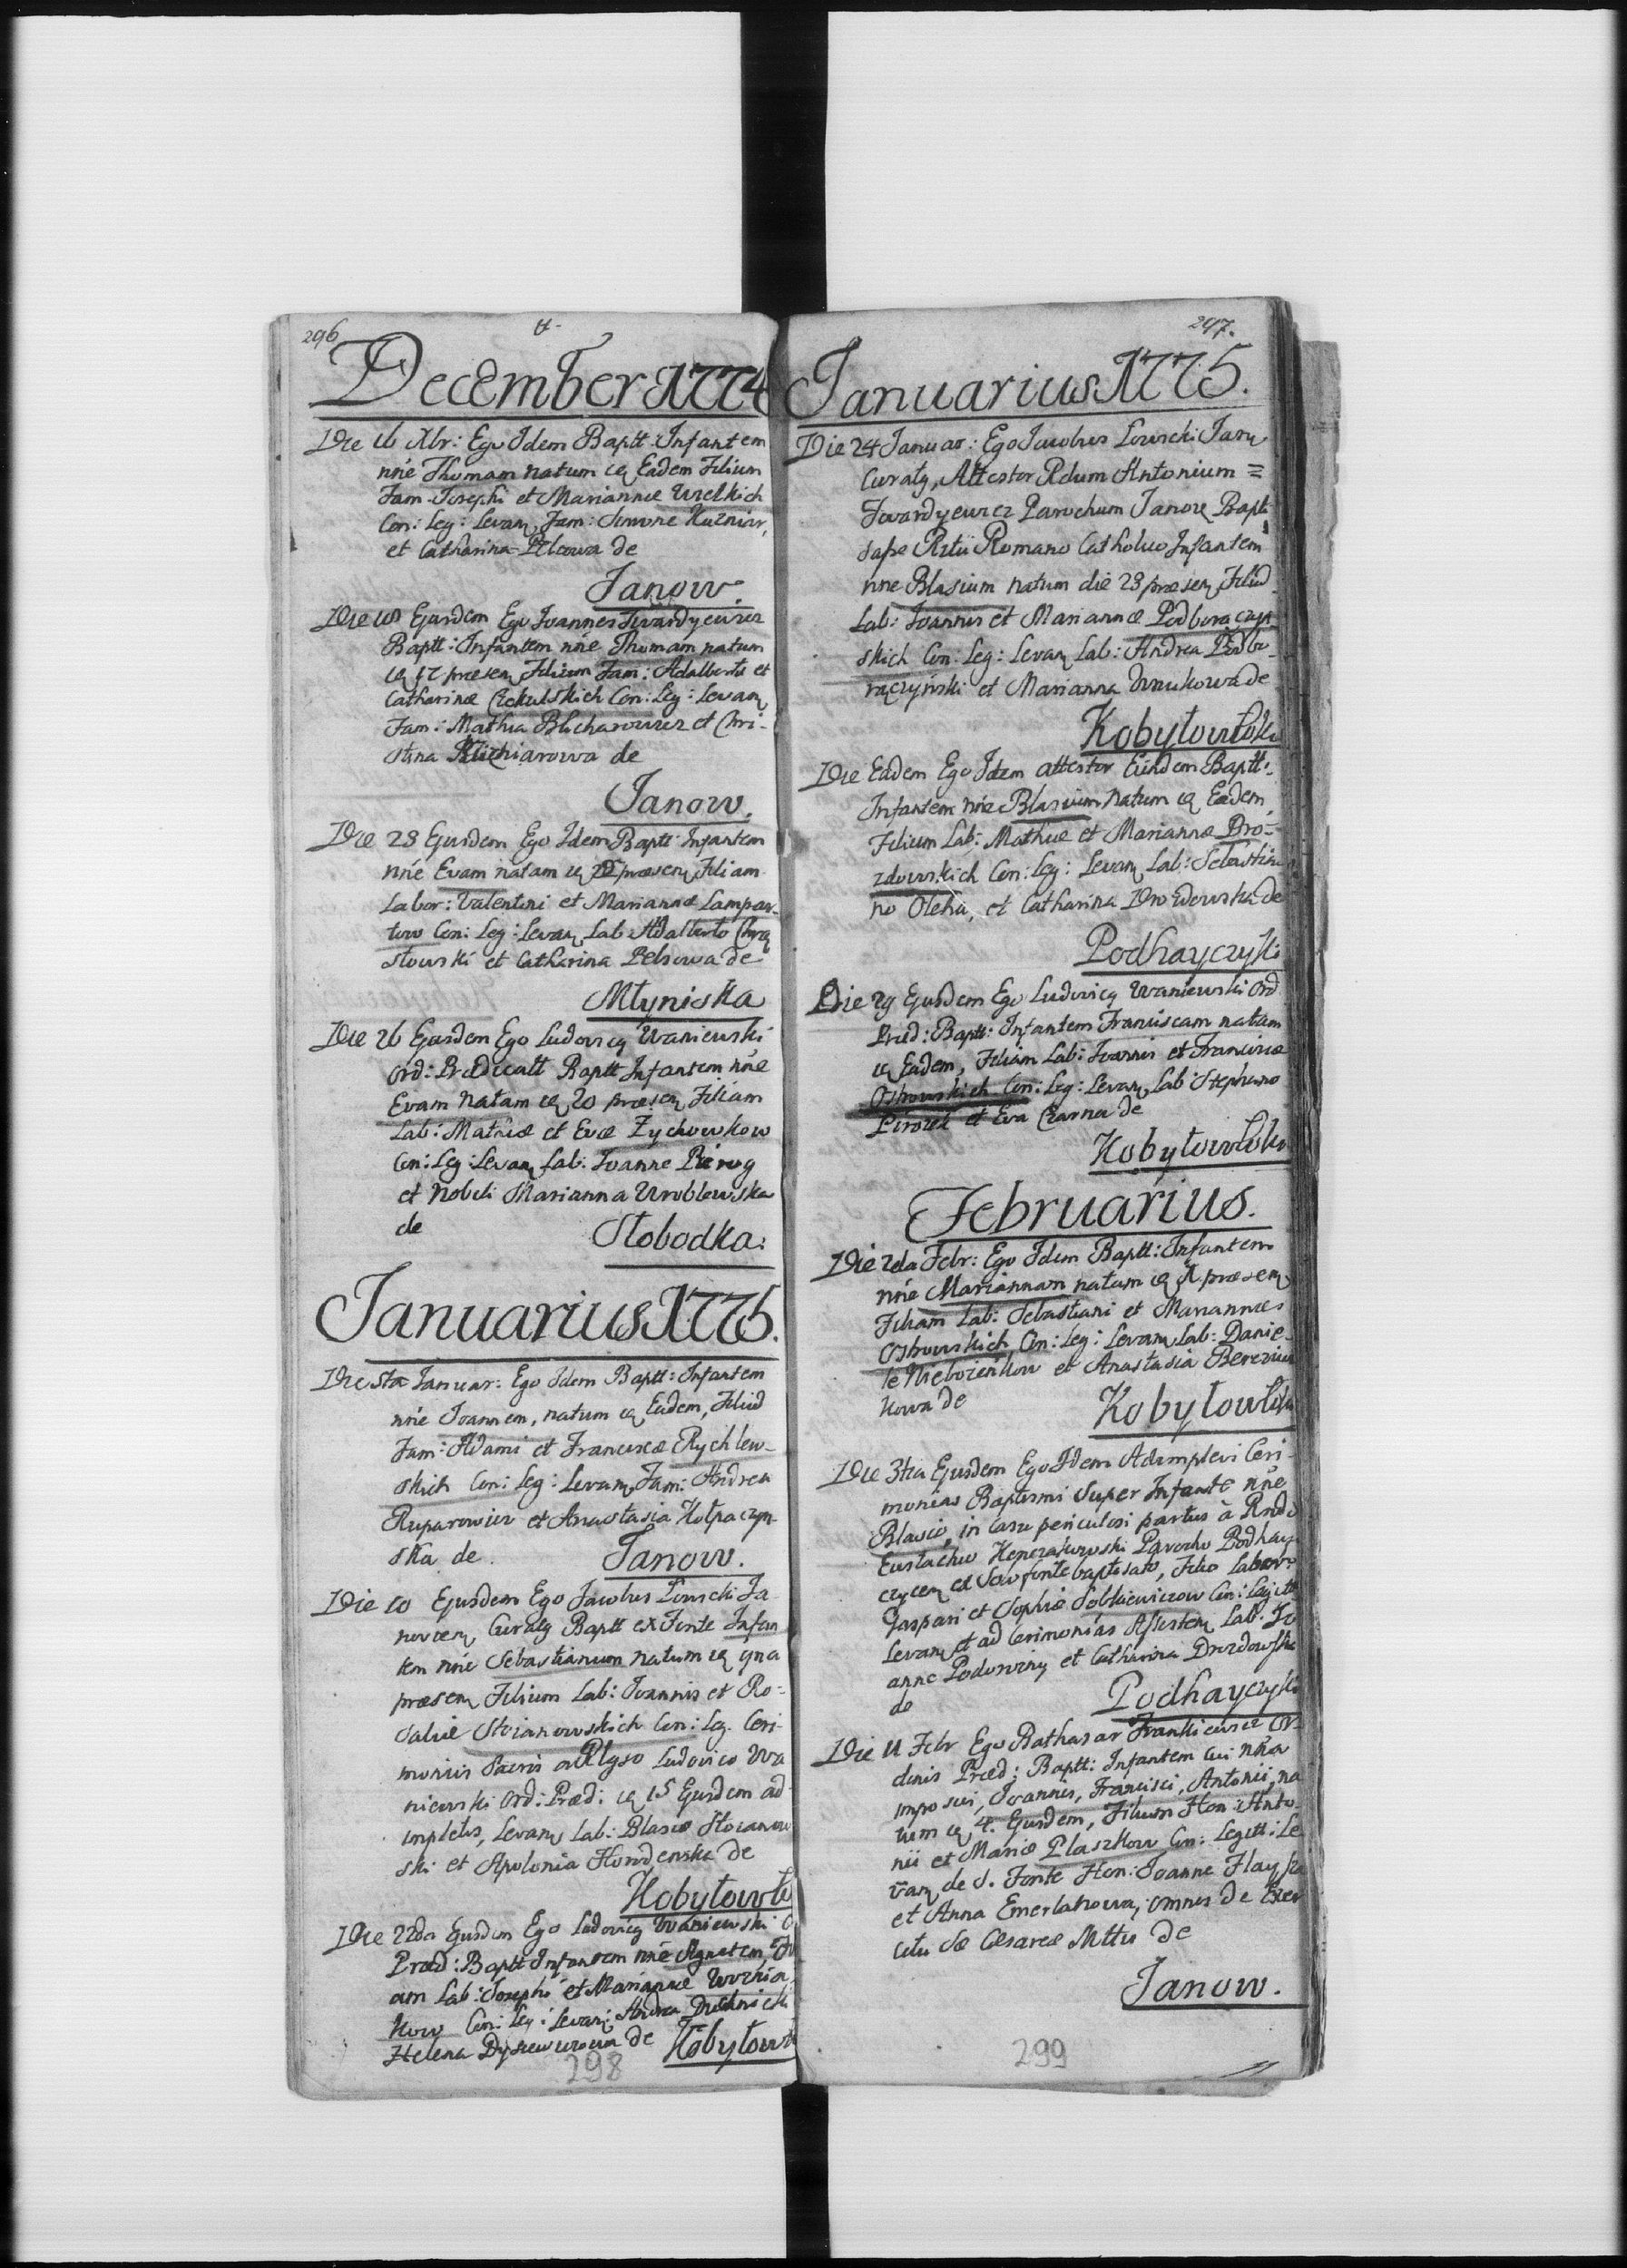 296
December 1774
Die 16 Xbr: Ego Idem Baptt: Infantem
nñe Thomam natum Eadem Filium
Fam: Josephi et Mariannæ Wielkich
Con: Leg: Levan, Fam: Simone Kuzniar,
et Catharina Pelcowa de
Janow.
Die 18 Ejusdem Ego Joannes Twardyewicz
Baptt: Infantem nñe Thomam natum
17 præsen, Filium Fam: Adalberti et
Catharinæ Czekulskich Con: Leg: Levan,
Fam: Mathia Blicharowicz et Chri-
stina Blicharowa de
Janow.
Die 23 Ejusdem Ego Idem Baptt: Infantem
nñe Evam natam præsen, Filiam
Labor: Valentini et Mariannæ Lampar-
tow Con: Leg: Levan, Lab: Adalberto
stowski et Catharina Pelcowa de
Młyniska
Die 26 Ejusdem Ego Ludovicq Waniewski
Ord: Prædicatt Baptt Infantem nñe
Evam natam 20 præsen, Filiam
Lab: Mathiæ et Evæ Zychowkow
Con: Leg: Levan, Lab: Joanne Pierog
et Nobili Marianna Wroblewska
de
Słobodka:
Januarius 1775.
Die 5ta Januar: Ego Idem Baptt: Infantem
nñe Joannem, natum Eadem, Filiũ
Fam: Adami et Franciscæ Rychlew-
skich Con: Leg: Levan, Fam: Andrea
Ruparowicz et Anastasia Kołpaczyn-
ska de
Janow.
Die 10 Ejusdem Ego Jacobus Łowicki Ja
novien, Curatq Baptt ex Fonte Infan
tem nñe Sebastianum natum 9na
præsen, Filium Lab: Joannis et Ro-
saliæ Stoianowskich Con: Leg. Ceri-
moniis Sacris a Ludovico Wa
niewski Ord: Præd: 15 Ejusdem ad
impletis, Levan, Lab: Blasio Stoianow
ski et Apolonia de
Kobyłowło
Die 22da Ejusdem Ego Ludovicq Waniewski O
Præd: Baptt Infantem nñe Agnetem, Fili
am Lab: Josephi et Mariannæ Woznia
kow Con: Leg: Levan: Andrea
Helena de Kobyłow
298
297.
Januarius 1775.
Die 24 Januar: Ego Jacobus Łowicki Jan
Curatq, Attestor Rdum Antonium =
Twardyewicz Parochum Janov, Bapt
Ritu Romano Catholico Infantem
nñe Blasium natum die 23 præsen, Filiũ
Lab: Joannis et Mariannæ Podboraczyn
skich Con: Leg: Levan, Lab: Andrea Podbo-
raczyński et Marianna Wnukowa de
Kobyłowłoki
Die Eadem Ego Idem attestor Eundem Baptt:
Infantem nñe Blasium natum Eadem
Filium Lab: Mathiæ et Mariannæ Dro-
zdowskich Con: Leg: Levan, Lab: Sebastia
no Oleha, et Catharina Drozdowska de
Podhayczyki
Die 29 Ejusdem Ego Ludovicq Waniewski Ord
Præd: Baptt: Infantem Franciscam natam
Eadem, Filiam Lab: Joannis et Franciscæ
Ostrowskich Con: Leg: Levan, Lab: Stephano
Pirożek et Eva Czarna de
Kobyłowłoki
Februarius.
Die 2da Febr: Ego Idem Baptt: Infantem
nñe Mariannam natam præsen,
Filiam Lab: Sebastiani et Mariannæ
Ostrowskich Con: Leg: Levan, Lab: Danie-
le et Anastasia Berezniu
kowa de
Kobyłowłoki
Die 3tia Ejusdem Ego Idem Adimplevi Ceri-
monias Baptismi super Infante nñe
Blasio, in casu periculosi partus à Rndo
Eustachio Parocho Podhay-
cycen, ex fonte baptisato, Filio Labor:
Gaspari et Sophiæ Sobkiewiczow Con: Legitt
Levan, et ad Cerimonias Assisten, Lab: Jo
anne et Catharina Drozdowska
de
Podhayczyki
Die 11 Febr Ego Balthasar Frankiewicz Or-
dinis Præd: Baptt: Infantem cui nña
imposui, Joannis, Francisci, Antonii, na
tum 4. Ejusdem, Filium Hon: Anto-
nii et Mariæ Plaszkow Con: Legitt: Le
van, de S. Fonte Hon: Joanne
et Anna omnes de Exer
citu Sæ Cæsareæ Mttis de
Janow.
299